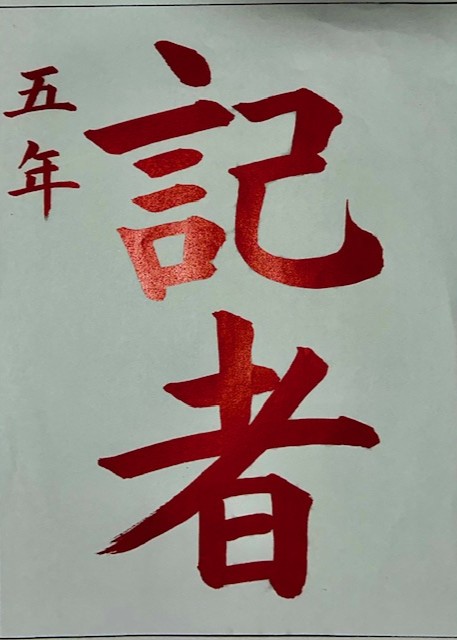 記者
五年